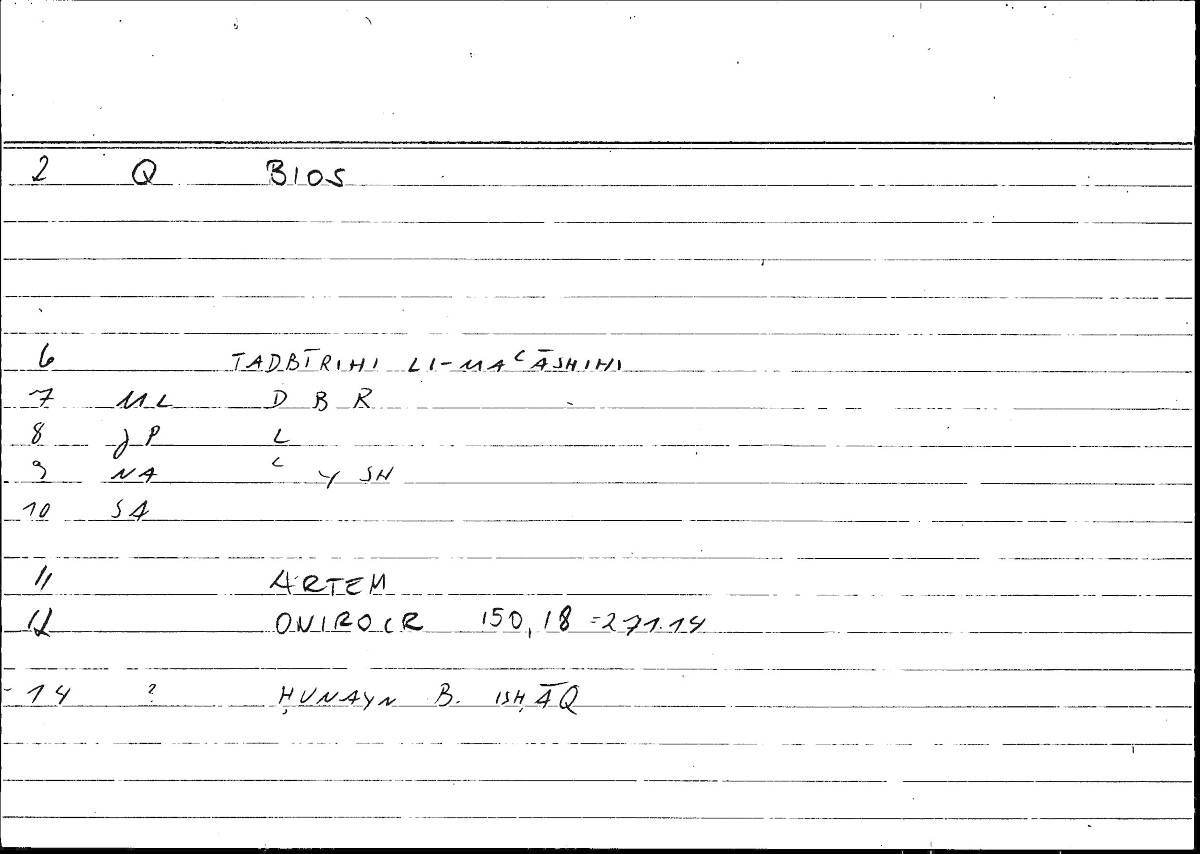 2 Q BIOS
6 TADBĪRIHI LI-MAʿĀSHIHI
7 ML D B R
8 JP L
9 NA ʿ Y SH
10 SA
11 ARTEM
12 ONIROCR 150,18 =271.14
14 ? ḤUNAYN B. ISḤĀQ